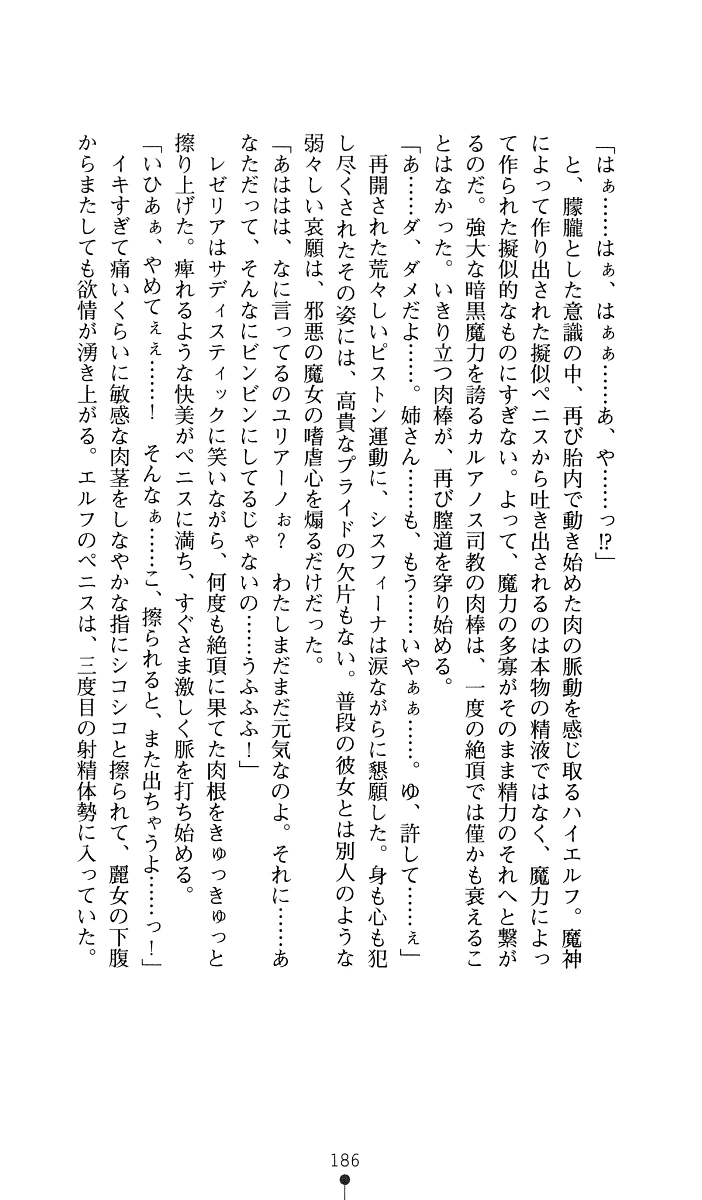 「はぁ……はぁ、はぁぁ……あ、や……っ!?」
　と、朦朧とした意識の中、再び胎内で動き始めた肉の脈動を感じ取るハイエルフ。魔神
によって作り出された擬似ペニスから吐き出されるのは本物の精液ではなく、魔力によっ
て作られた擬似的なものにすぎない。よって、魔力の多寡がそのまま精力のそれへと繋が
るのだ。強大な暗黒魔力を誇るカルアノス司教の肉棒は、一度の絶頂では僅かも衰えるこ
とはなかった。いきり立つ肉棒が、再び膣道を穿り始める。
「あ……ダ、ダメだよ……。姉さん……も、もう……いやぁぁ……。ゆ、許して……ぇ」
　再開された荒々しいピストン運動に、シスフィーナは涙ながらに懇願した。身も心も犯
し尽くされたその姿には、高貴なプライドの欠片もない。普段の彼女とは別人のような
弱々しい哀願は、邪悪の魔女の嗜虐心を煽るだけだった。
「あははは、なに言ってるのユリアーノぉ？　わたしまだまだ元気なのよ。それに……あ
なただって、そんなにビンビンにしてるじゃないの……うふふふ！」
　レゼリアはサディスティックに笑いながら、何度も絶頂に果てた肉根をきゅっきゅっと
擦り上げた。痺れるような快美がペニスに満ち、すぐさま激しく脈を打ち始める。
「いひあぁ、やめてぇぇ……！　そんなぁ……こ、擦られると、また出ちゃうよ……っ！」
　イキすぎて痛いくらいに敏感な肉茎をしなやかな指にシコシコと擦られて、麗女の下腹
からまたしても欲情が湧き上がる。エルフのペニスは、三度目の射精体勢に入っていた。
186